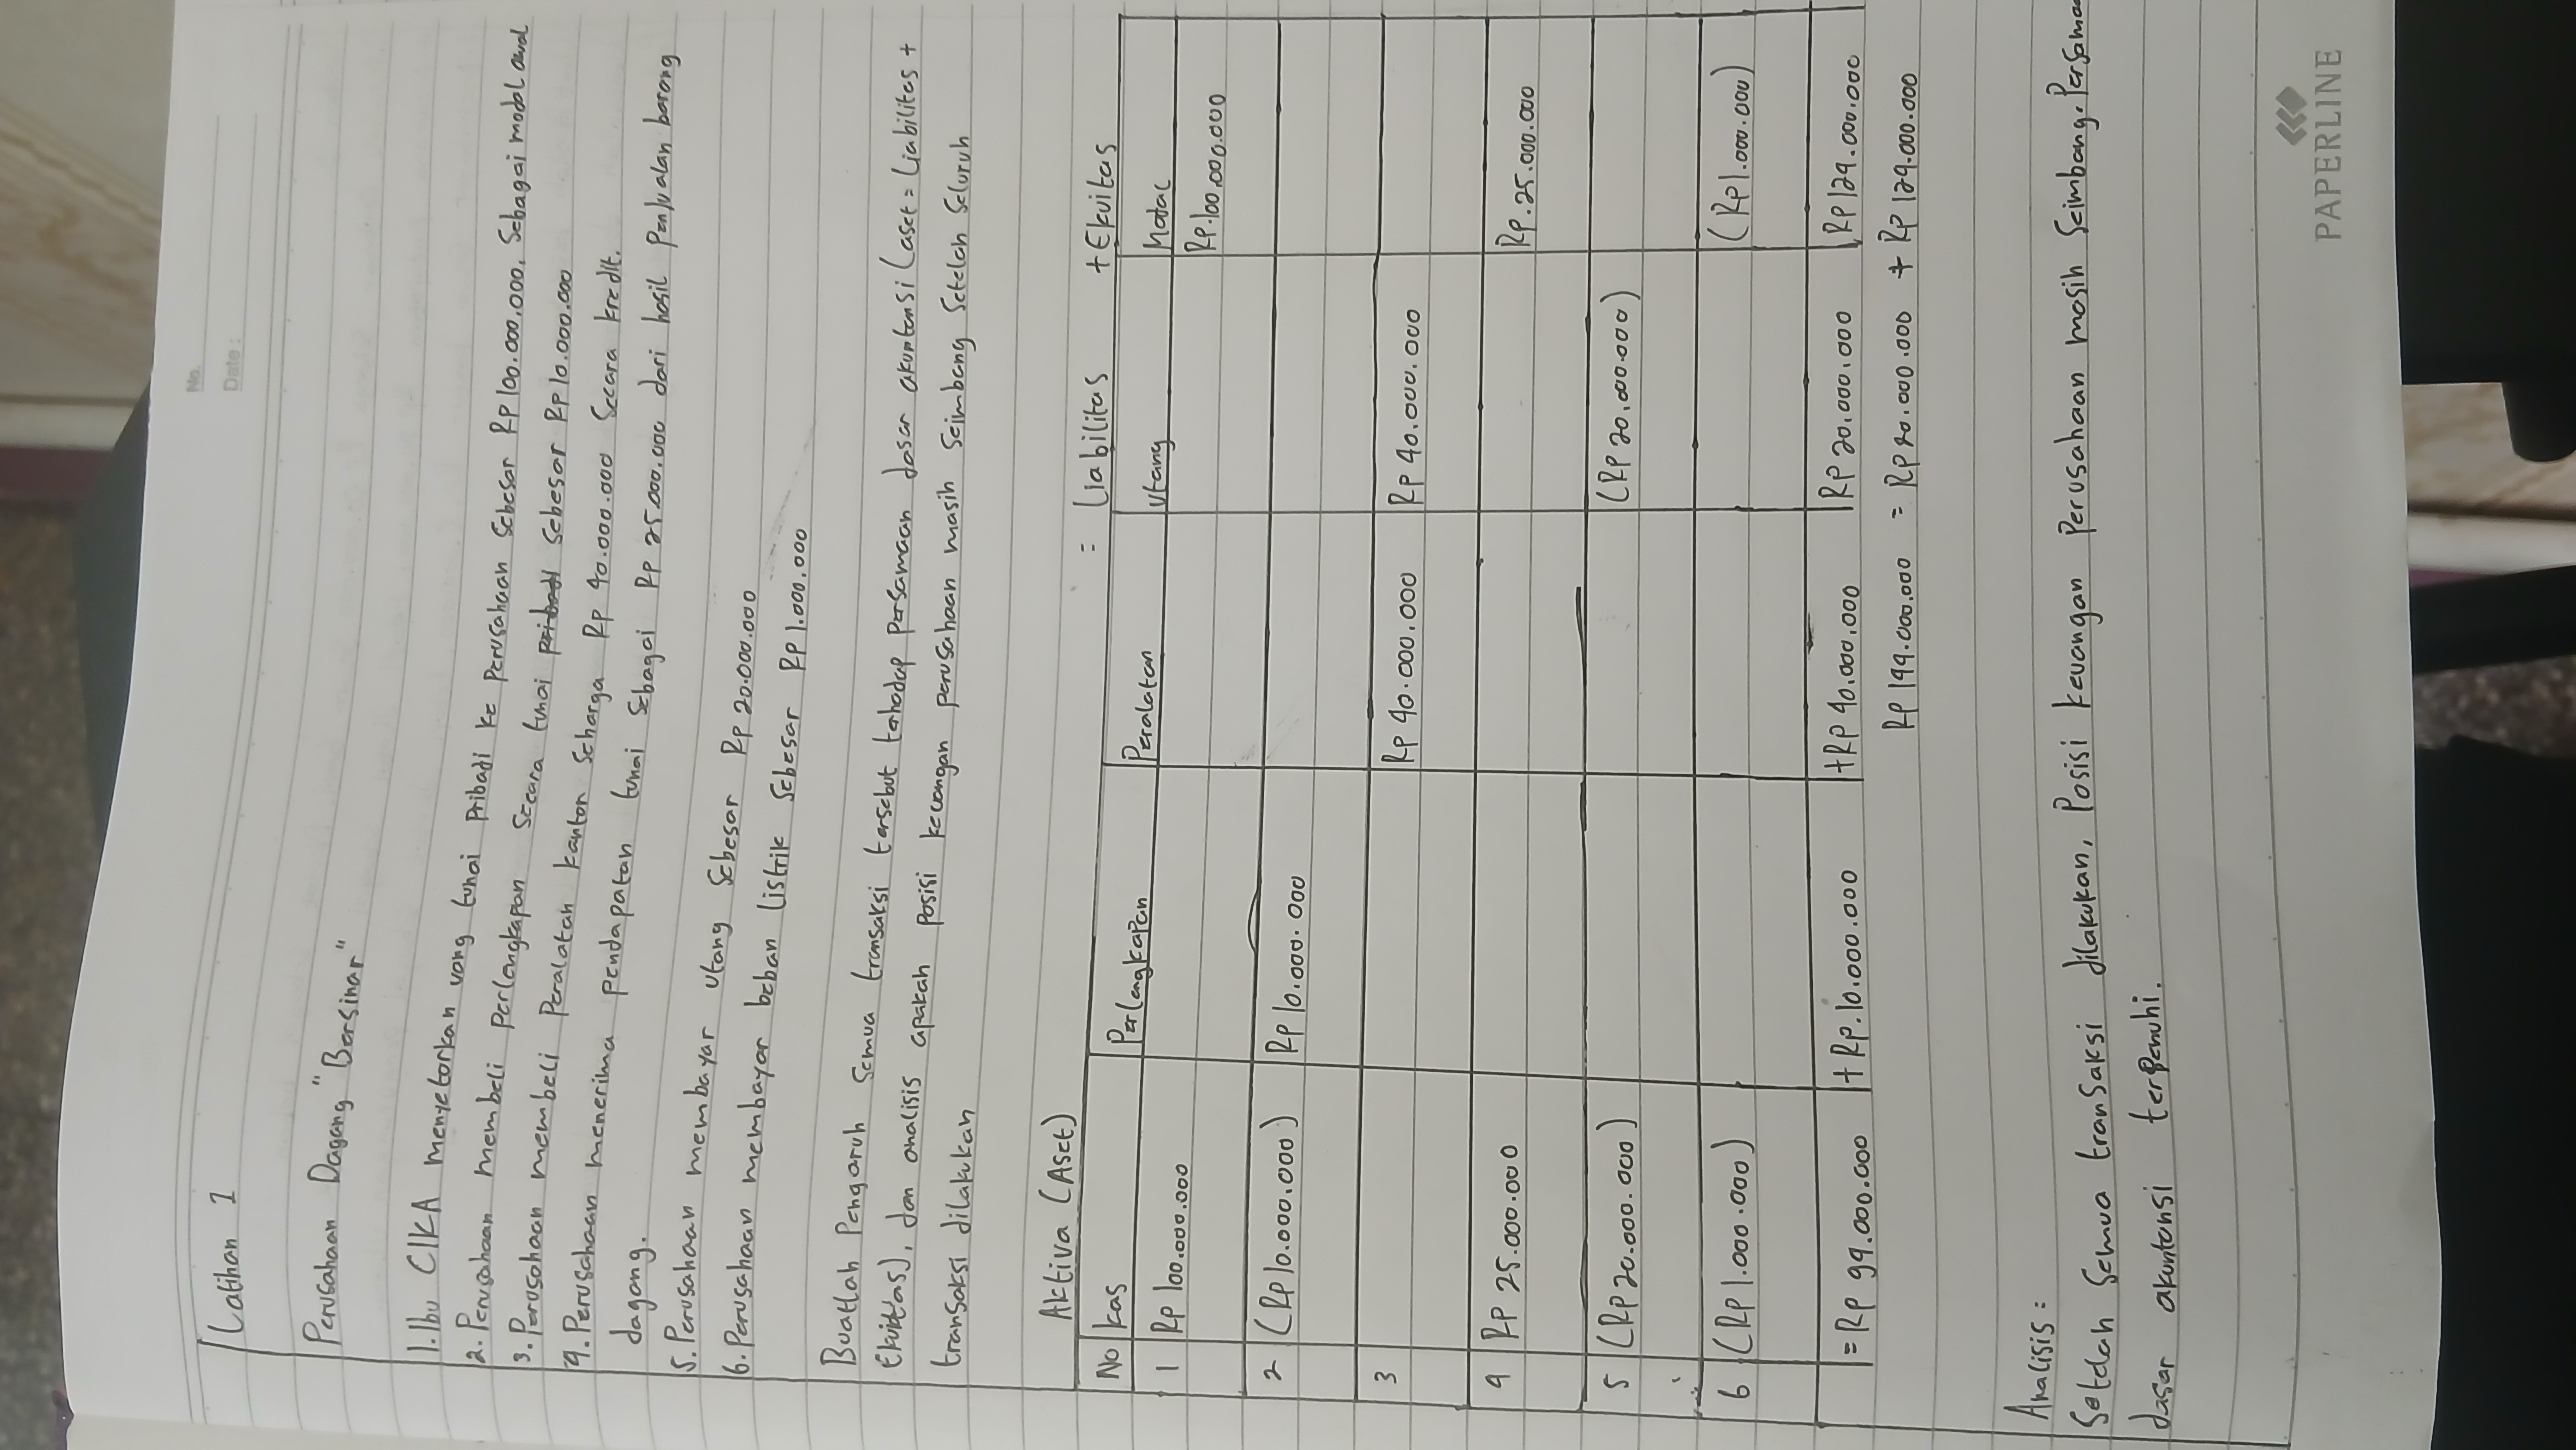 No.
Date:
Latihan 1
Perusahaan Dagang "Bersinar"
1. Ibu CIKA menyetorkan uang tunai Pribadi ke Perusahaan Sebesar Rp100.000.000, Sebagai modal awal
2. Perusahaan membeli Perlengkapan Secara tunai pribadi Sebesar Rp 10.000.000
3. Perusahaan membeli Peralatan kantor Seharga Rp 40.000.000 Secara kredit.
4. Perusahaan menerima Pendapatan tunai Sebagai Rp 25.000.000 dari hasil Penjualan barang
dagang.
5. Perusahaan membayar utang Sebesar Rp 20.000.000
6. Perusahaan membayar beban Listrik Sebesar Rp 1.000.000
Buatlah Pengaruh Semua transaksi tersebut terhadap Persamaan dasar akuntansi (aset = Liabilitas +
Ekuitas), dan analisis apakah Posisi keuangan perusahaan masih Seimbang Setelah Seluruh
transaksi dilakukan
Aktiva (Aset) = Liabilitas + Ekuitas
No Kas Perlengkapan Peralatan Utang Modal
1 Rp 100.000.000 Rp.100.000.000
2 (Rp 10.000.000) Rp 10.000.000
3 Rp 40.000.000 Rp 40.000.000
4 Rp 25.000.000 Rp.25.000.000
5 (Rp 20.000.000) (Rp 20.000.000)
6 (Rp 1.000.000) (Rp 1.000.000)
= Rp 99.000.000 + Rp.10.000.000 + Rp 40.000.000 Rp 20.000.000 Rp 129.000.000
Rp 149.000.000 = Rp 20.000.000 + Rp 129.000.000
Analisis :
Setelah Semua transaksi dilakukan, Posisi keuangan Perusahaan masih Seimbang. Persamaa
dasar akuntansi terpenuhi.
PAPERLINE